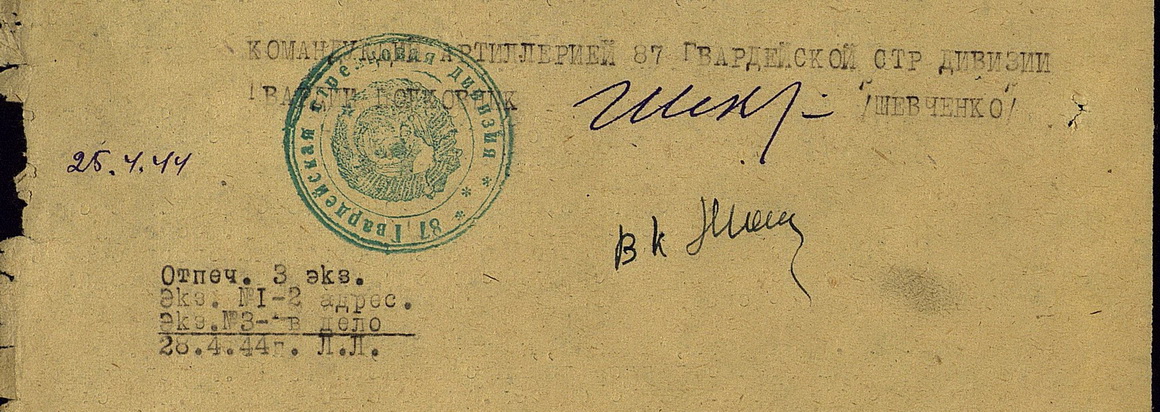 КОМАНДУЮЩИЙ АРТИЛЛЕРИЕЙ 87 ГВАРДЕЙСКОЙ СТР ДИВИЗИИ
ГВАРДИИ ПОЛКОВНИК /ШЕВЧЕНКО/
25.4.44
87 Гвардейская стрелковая дивизия
Отпеч. 3 экз.
Экз. №I-2 адрес.
Экз.№3- в дело
28.4.44г. Л.Л.